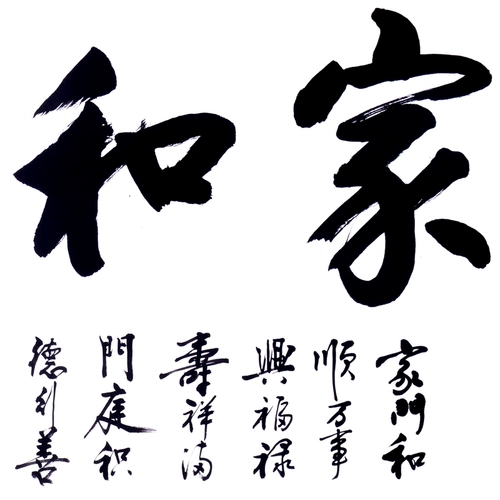 家和
家門和
順万事
興福禄
壽祥满
門庭积
德行善